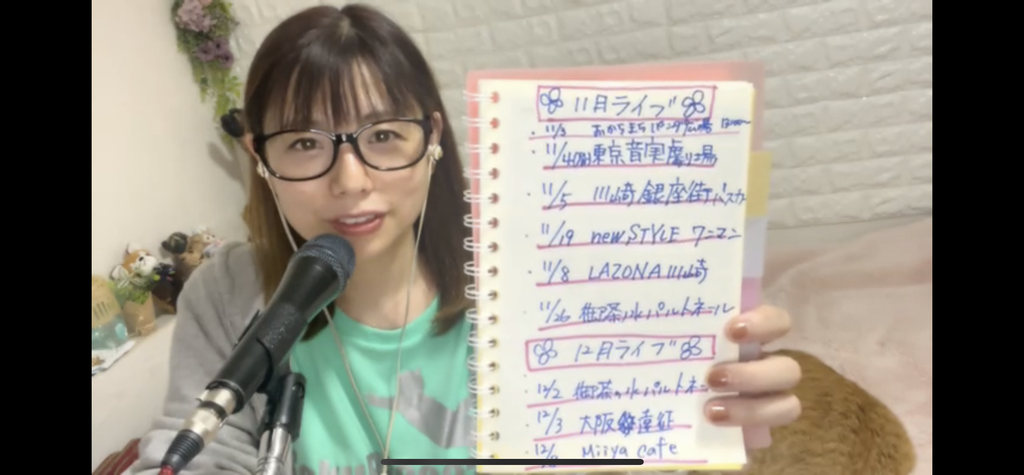 11月ライブ
・11/3
11/4 東京音実劇場
・11/5 川崎銀座街バスカ
・11/19 new STYLE ワンマン
11/8 LAZONA川崎
・11/26 御茶ノ水パルトネール
12月ライブ
・12/2 御茶ノ水パルトネー
・12/3 大阪
12/ Miiya cafe